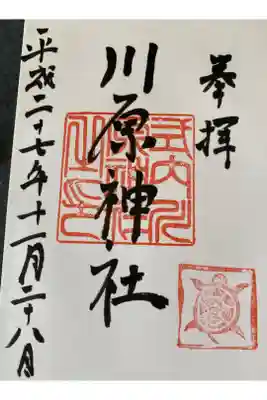 奉拝
川原神社
平成二十七年十一月二十八日